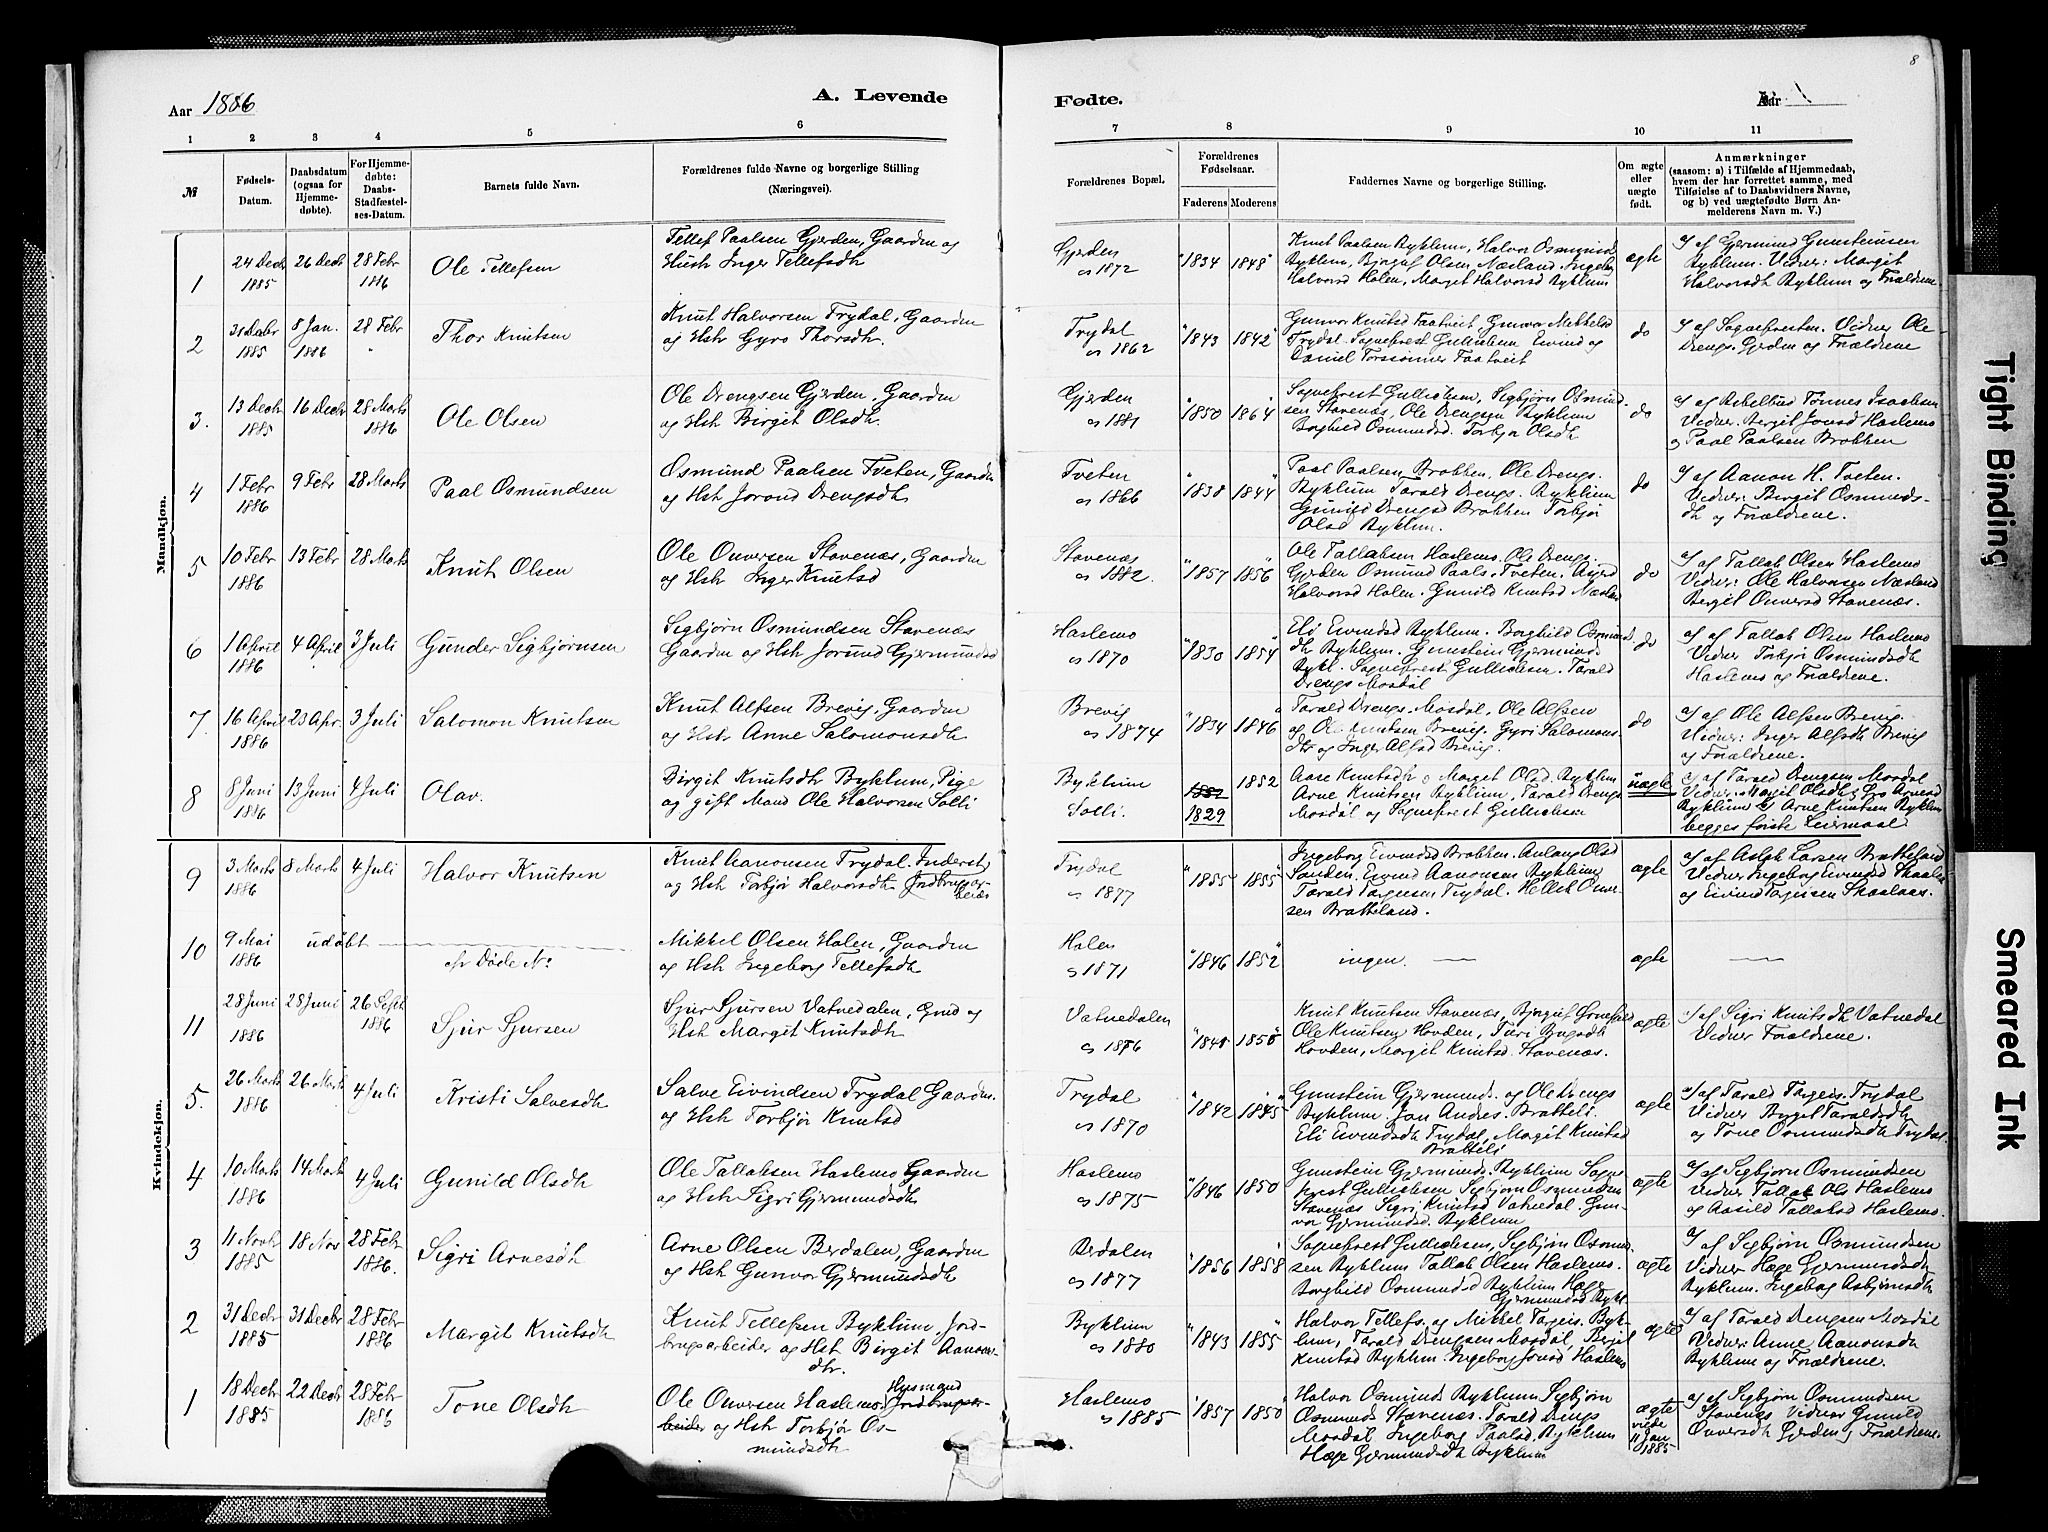 8
Aar 1886
A. Levende
Fødte.
Aar 1
1 2 3 4 5 6 7 8 9 10 11
№
Fødsels-Datum.
Daabsdatum (ogsaa for Hjemmedøbte).
For Hjemmedøbte: Daabs-Stadfæstelses-Datum.
Barnets fulde Navn.
Forældrenes fulde Navne og borgerlige Stilling (Næringsvei).
Forældrenes Bopæl.
Forældrenes Fødselsaar.
Faderens Moderens
Faddernes Navne og borgerlige Stilling.
Om ægte eller uægte født.
Anmærkninger
(saasom: a) i Tilfælde af Hjemmedaab, hvem der har forrettet samme, med Tilføielse af to Daabsvidners Navne, og b) ved uægtefødte Børn Anmelderens Navn m. V.)
Mandkjøn.
1 24 Decbr 1885 26 Decbr 28 Febr 1886 Ole Tellefsen
Tellef Paalsen Gjerden, Gaardm og
Hustr Inger Tellefsdtr
Gjerden 1872 1834 1848
Knut Paalsen Byklum, Halvor Osmunds
Byklum, Bjuguf Olsen Næsland. Ingebor
Halvorsd Holen, Margit Halvorsd Byklum
ægte
af Gjermund Gunsteinsen
Byklum. Vidner: Margit
Halvorsdtr Byklum og Forældrene
2 31 Decbr 1885 8 Jan. 1886 28 Febr " Thor Knutsen
Knut Halvorsen Trydal, Gaardm
og Hstr Gyro Thorsdtr.
Trydal 1862 1843 1842
Gunvor Knutsd Taatveit, Gunvor Mikkelsd
Trydal. Sogneprest Gullichsen Eivind og
Daniel Torssønner Taatveit
do
af Sognepresten. Vidner Ole
Drengs. Gjerden og Forældrene
3. 13 Decbr 1885 16 Decbr 28 Marts 1886 Ole Olsen
Ole Drengsen Gjerden, Gaardm
og Hstr Birgit Olsdtr.
Gjerden 1881 1850 1864
Sogneprest Gullichsen, Sigbjørn Osmund-
sen Stavenæs, Ole Drengsen Byklum
Borghild Osmundsd. Torbjør Olsdtr
do
af Arbeider Tønnes Isaksen
Vidner. Bergit Jonsd Haslemo
og Paal Paalsen Brokken
4 1 Febr 1886 9 Febr 28 Marts Paal Osmundsen
Osmund Paalsen Tveten, Gaardm
og Hstr Jorond Drengsdtr
Tveten 1866 1838 1844
Paal Paalsen Brokken. Ole Drengs.
Byklum Tarald Drengs. Byklum
Gunild Drengsd Brokken Torbjør
Olsd Byklum.
do
af Aanon H. Tveten.
Vidner: Bergit Osmunds-
dtr og Forældrene.
5 10 Febr 1886 13 Febr 28 Marts Knut Olsen
Ole Onversen Stavenæs, Gaardm
og Hstr Inger Knutsd
Stavenæs 1882. 1857 1856
Ole Tallaksen Haslemo. Ole Drengs.
Gjerden Osmund Paals. Tveten. Asjerd
Halvorsd Holen. Gunild Knutsd Næsland
do
af Tallak Olsen Haslemo
Vidner: Ole Halvorsen Næsland
Bergit Onversd Stavenæs.
6 1 April 1886 4 April 3 Juli Gunder Sigbjørnsen
Sigbjørn Osmundsen Stavenæs
Gaardm og Hstr Jorund Gjermundsd
Haslemo 1870 1830 1854
Eli Eivindsd Byklum. Borghild Osmund-
dtr Byklum. Gunstein Gjermunds
Bykl. Sogneprest Gullichsen. Tarald
Drengs Mosdøl
do
af Tallak Olsen Haslemo
Vidner Torbjør Osmundsdtr
Haslemo og Forældrene.
7. 16 April 1886 23 Apr. 3 Juli Salomon Knutsen
Knut Alfsen Brevig. Gaardm
og Hstr Anne Salomonsdtr
Brevig 1874 1834 1846
Tarald Drengs. Mosdøl, Ole Alfsen
og Ole Knutsen Brevig. Gyri Salomons-
dtr og Inger Alfsd Brevig.
do
af Ole Alfsen Brevig.
Vidner: Inger Alfsdtr Brevig
og Forældrene.
8 8 Juni 1886 13 Juni 4 Juli Olav.
Birgit Knutsdtr Byklum, Pige
og gift Mand Ole Halvorsen Solli
Byklum 1852
Solli. 1829
Aase Knutsdtr og Margit Olsd. Byklum
Arne Knutsen Byklum, Tarald Drengs
Mosdøl og Sogneprest Gullichsen
uægte
af Tarald Drengsen Mosdøl
Vidner: Margit Olsdtr Gro Arnesd
Byklum og Arne Knutsen Byklum
begges første Leiermaal
9 3 Marts 1886 8 Marts 4 Juli Halvor Knutsen
Knut Aanonsen Trydal. Inderst
og Hstr Torbjør Halvorsdtr Jordbrugsar-
beider
Trydal 1877 1855 1855
Ingeborg Eivindsd Brokken. Anlaug Olsd
Sanden. Eivind Aanonsen Byklum
Tarald Torgusen Trydal. Hellek Onver-
sen Bratteland.
ægte
af Aslak Larsen Bratteland
Vidner Ingeborg Eivindsd Skaalaas
og Eivind Torjusen Skaalaas.
10 9 Mai 1886 udøbt
cfr Døde №
Mikkel Olsen Holen, Gaardm
og Hstr Ingeborg Tellefsdtr
Holen 1871 1846 1852
ingen.
ægte
11 28 Juni 1886 28 Juni 26 Septbr 1886 Sjur Sjursen
Sjur Sjursen Vatnedalen, Grmd og
Hstr Margit Knutsdtr
Vatnedalen 1876 1848 1850
Knut Knutsen Stavenæs, Bjuguf
Ole Knutsen Hovden, Turi Bjugsdtr
Hovden, Margit Knutsd. Stavenæs.
ægte
af Sigri Knutsdtr Vatnedal
Vidner Forældrene.
Kvindekjøn.
5. 26 Marts 1886 26 Marts 4 Juli Kristi Salvesdtr
Salve Eivindsen Trydal Gaardm.
og Hstr Torbjør Knutsd
Trydal 1870 1842 1845
Gunstein Gjermunds. og Ole Drengs
Byklum. Jon Andrs. Bratteli.
Eli Eivindsdtr Trydal, Margit Knutsd
Bratteli
ægte
af Tarald Targeis. Trydal
Vidner Byrgit Taraldsdtr
og Tone Osmundsdtr Trydal
4 10 Marts 1886 14 Marts 4 Juli Gunild Olsdtr
Ole Tallaksen Haslemo Gaardm
og Hstr Sigri Gjermundsdtr
Haslemo 1875 1846 1850
Gunstein Gjermunds. Byklum Sogne-
prest Gullichsen Sigbjørn Osmundsen
Stavenæs Sigri Knutsd Vatnedal. Gun-
vor Gjermundsd Byklum
ægte
af Sigbjørn Osmundsen
Vidner Tallak Ols Haslemo
og Aasild Tallaksd Haslemo.
3 11 Novbr 1885 18 Nov 28 Febr 1886. Sigri Arnesdtr
Arne Olsen Berdalen, Gaardm
og Hstr Gunvor Gjermundsdtr
Berdalen 1877 1856 1858
Sogneprest Gullichsen, Sigbjørn Osmund-
sen Byklum Tallak Olsen Haslemo.
Borghild Osmundsd Byklum Hæge
Gjermundsd Bykl.
ægte
af Sigbjørn Osmundsen
Vidner Hæge Gjermundsdtr
Byklum. Ingeborg Asbjørnsdtr
2 31 Decbr 1885 31 Decbr 28 Febr 1886 Margit Knutsdtr
Knut Tellefsen Byklum, Jord-
brugsarbeider og Hstr Birgit Aanons-
dtr.
Byklum 1880 1843 1855
Halvor Tellefs. og Mikkel Targeis. Byk-
lum, Tarald Drengsen Mosdøl, Bergit
Knutsd Byklum. Ingeborg Jonsd, Haslemo
ægte
af Tarald Drengsen Mosdøl
Vidner: Anne Aanonsdtr
Byklum og Forældrene.
1 18 Decbr 1885 22 Decbr 28 Febr 1886 Tone Olsdtr
Ole Onversen Haslemo, Husmand Jordbrugsar-
beider og Hstr Torbjør Os-
mundsdtr
Haslemo 1885 1857 1850
Halvor Osmunds Byklum Sigbjørn
Osmunds Stavenæs. Tarald Drengs
Mosdøl Ingeborg Paalsd. Byklum
Hæge Gjermundsdtr Byklum
ægte
viede
11 Jan
1885
af Sigbjørn Osmundsen
Stavenæs. Vidner Gunild
Onversdtr Gjerden og Forældrene.
Tight Binding
Smeared Ink